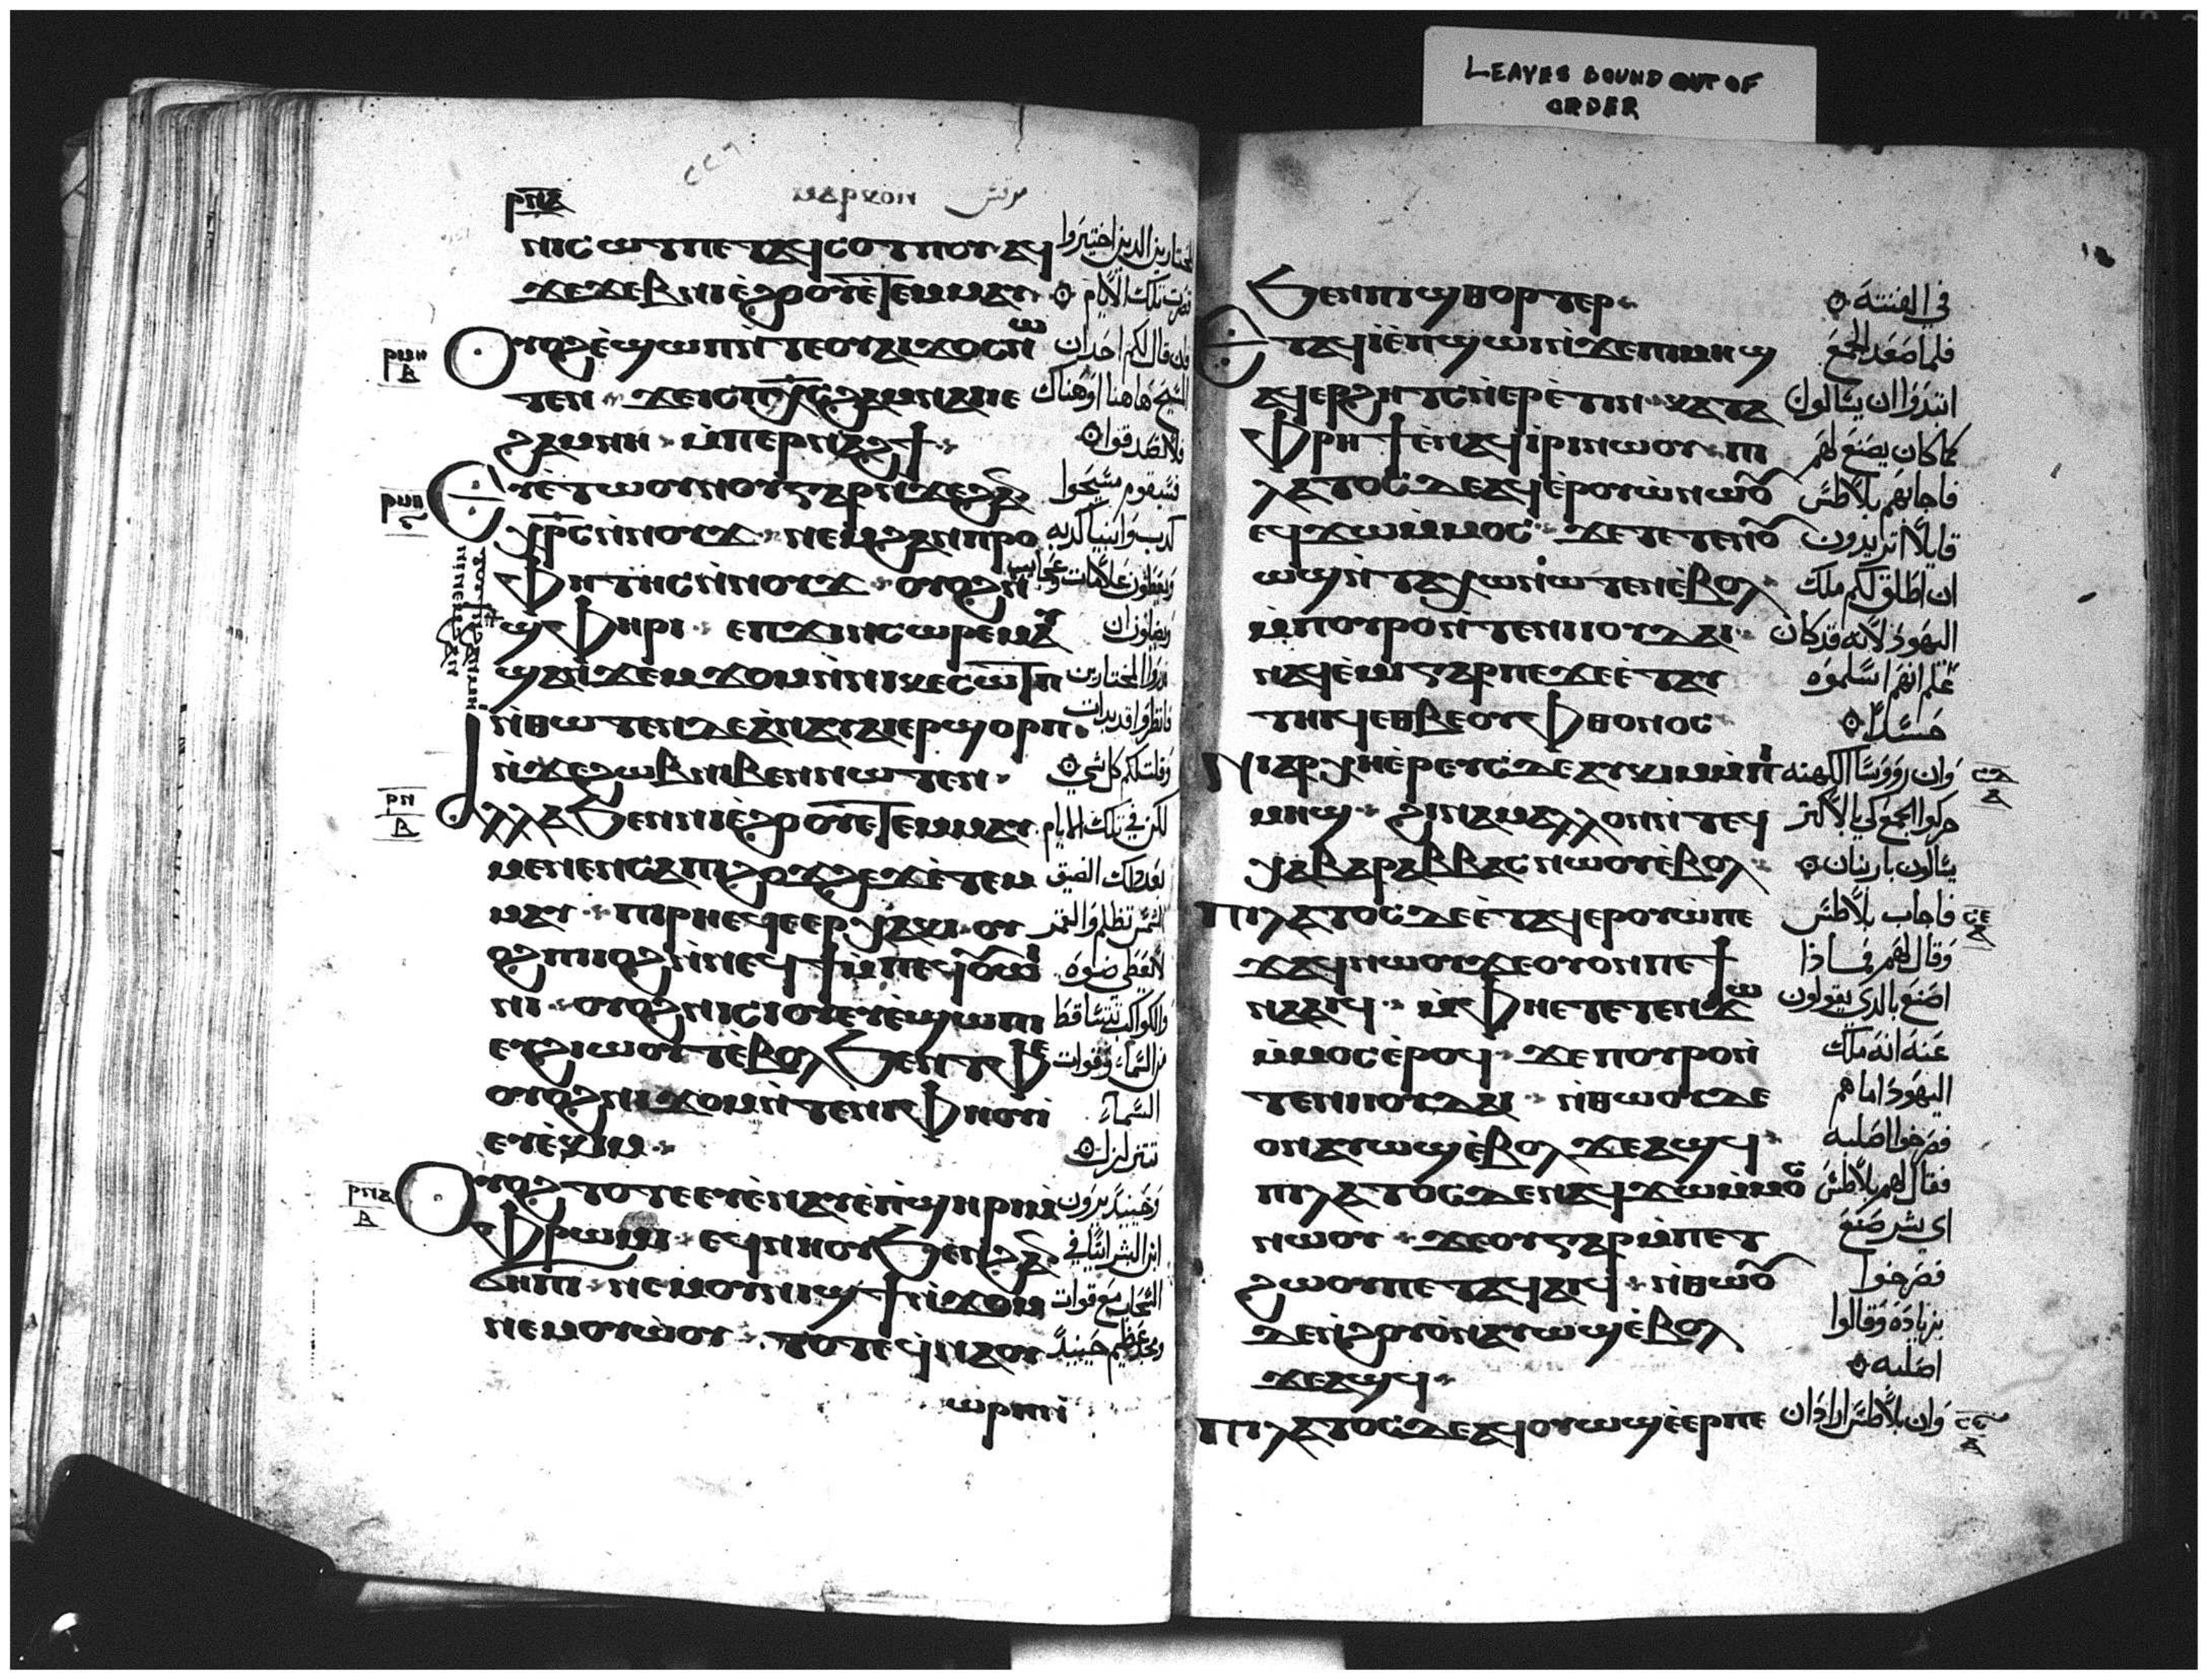 LEAVES BOUND OUT OF
ORDER
ⲙⲁⲣⲕⲟⲛ مرقس
ⲛⲓⲥⲱⲧⲡ ⲉⲧⲁϥⲥⲟⲧⲡⲟⲩ ⲁϥ المختارين الذين اختيروا
ϫⲉϫⲉⲃ ⲛⲓⲉϩⲟⲟⲩ ⲉⲧⲉⲙⲙⲁⲩ قصرت تلك الايام
ⲟⲩⲟϩ ⲉϣⲱⲡ ⲛⲧⲉ ⲟⲩⲁⲓ ϫⲟⲥ ⲛⲱ وان قال لكم احد ان
ⲧⲉⲛ ϫⲉ ⲓⲥ ⲡⲭⲥ ϩⲁⲙⲛⲁⲓ ⲓⲉ المسيح هاهنا او هناك
ϩⲁⲙⲛⲏ ⲙⲡⲉⲣⲛⲁϩϯ فلا تصدقوا
ⲉⲩⲉⲧⲱⲟⲩⲛⲟⲩ ⲅⲁⲣ ⲛϫⲉ ϩⲁⲛ فسيقوم مسيحوا
ⲭⲣⲥ ⲛⲛⲟⲩϫ ⲛⲉⲙ ϩⲁⲛⲡⲣⲟ كذب وانبيا كذبه
ⲫⲏⲧⲏⲥ ⲛⲛⲟⲩϫ ⲟⲩⲟϩ ويعطون علامات وعجايب
ϣⲫⲏⲣⲓ ⲉⲡϫⲓⲛⲥⲱⲣⲉⲙ ويضلون ان
ϣⲁⲓϫⲉⲙϫⲟⲙ ⲛⲛⲓⲕⲉⲥⲱⲧⲡ قدروا المختارين
ⲛⲑⲱⲧⲉⲛ ⲇⲉ ⲁⲛⲁⲩ ⲁⲓⲉⲣϣⲟⲣⲡ فانظروا قد بدات
ⲛϫⲉ ϩⲱⲃ ⲛⲓⲃⲉⲛ ⲛⲱⲧⲉⲛ وقلت لكم كل شي
ⲁⲗⲗⲁ ϧⲉⲛ ⲛⲓⲉϩⲟⲟⲩ ⲉⲧⲉⲙⲙⲁⲩ لكن في تلك الايام
ⲙⲉⲛⲉⲛⲥⲁ ⲡⲓϩⲟϫϩⲉϫ ⲉⲧⲉⲙ بعد ذلك الضيق
ⲙⲁⲩ ⲡⲓⲣⲏ ⲉϥⲉⲉⲣⲭⲁⲕⲓ ⲟⲩ الشمس تظلم والقمر
ⲟϩ ⲡⲓⲓⲟϩ ⲛⲛⲉϥϯ ⲙⲡⲉϥⲟⲩⲱⲓ لا يعطي ضوه
ⲛⲓ ⲟⲩⲟϩ ⲛⲓⲥⲓⲟⲩ ⲉⲩⲉϣⲱⲡⲓ والكواكب تتساقط
ⲉⲩϩⲓⲱⲟⲩⲧ ⲉⲃⲟⲗ ϧⲉⲛ ⲧⲫⲉ من السماء وقوات
ⲟⲩⲟϩ ⲛⲓϫⲟⲙ ⲛⲧⲉ ⲛⲓⲫⲏⲟⲩⲓ السماء
ⲉⲩⲉⲕⲓⲙ تتزلزل
ⲟⲩⲟϩ ⲧⲟⲧⲉ ⲉⲩⲉⲛⲁⲩ ⲉⲡϣⲏⲣⲓ ⲙ وحينيذ يرون
ⲫⲣⲱⲙⲓ ⲉϥⲛⲏⲟⲩ ϧⲉⲛ ϩⲁⲛ ابن البشر اتيا في
ϭⲏⲡⲓ ⲛⲉⲙ ⲟⲩⲛⲓϣϯ ⲛϫⲟⲙ السحاب مع قوات
ⲛⲉⲙ ⲟⲩⲱⲟⲩ ⲧⲟⲧⲉ ϥⲛⲁⲟⲩ ومجد عظيم حينيذ
ⲱⲣⲡ
ϧⲉⲛ ⲡⲓϣⲑⲟⲣⲧⲉⲣ في الفتنة
ⲉⲧⲁϥⲓ ⲉⲡϣⲱⲓ ⲛϫⲉ ⲡⲓⲙⲏϣ فلما صعد الجمع
ⲁϥⲉⲣϩⲏⲧⲥ ⲛⲉⲣⲉⲧⲓⲛ ⲕⲁⲧⲁ ابتدوا ان يسالوا
ⲫⲣⲏϯ ⲉⲛⲁϥⲓⲣⲓ ⲛⲱⲟⲩ ⲡⲓ كما كان يصنع لهم
ⲗⲁⲧⲟⲥ ⲇⲉ ⲁϥⲉⲣⲟⲩⲱ ⲛⲱⲟⲩ فاجابهم بلاطس
ⲉϥϫⲱ ⲙⲙⲟⲥ ϫⲉ ⲧⲉⲧⲉⲛⲟⲩ قايلا اتريدون
ⲱϣ ⲛⲧⲁⲭⲱ ⲛⲱⲧⲉⲛ ⲉⲃⲟⲗ ان اطلق لكم ملك
ⲙⲡⲟⲩⲣⲟ ⲛⲧⲉ ⲛⲓⲓⲟⲩⲇⲁⲓ اليهود لانه قد كان
ⲛⲁϥⲉⲙⲓ ⲅⲁⲣ ⲡⲉ ϫⲉ ⲉⲧⲁⲩ علم انهم اسلموه
ⲧⲏⲓϥ ⲉⲑⲃⲉ ⲟⲩⲫⲑⲟⲛⲟⲥ حسدا
ⲛⲓⲁⲣⲭⲏⲉⲣⲉⲩⲥ ⲇⲉ ⲁⲩⲕⲓⲙ ⲙⲡⲓ وان رووسا الكهنه
ⲙⲏϣ ϩⲓⲛⲁ ⲙⲁⲗⲗⲟⲛ ⲛⲧⲉϥ حركوا الجمع كي بالاكثر
ⲭⲁ ⲃⲁⲣⲁⲃⲃⲁⲥ ⲛⲱⲟⲩ ⲉⲃⲟⲗ يسالون باربان
ⲡⲓⲗⲁⲧⲟⲥ ⲇⲉ ⲉⲧⲁϥⲉⲣⲟⲩⲱ ⲡⲉ فاجاب بلاطس
ϫⲁϥ ⲛⲱⲟⲩ ϫⲉ ⲟⲩ ⲟⲛ ⲡⲉϯ وقال لهم فماذا
ⲛⲁⲁⲓϥ ⲙⲫⲏ ⲉⲧⲉⲧⲉⲛϫⲱ اصنع بالذي يقولون
ⲙⲙⲟⲥ ⲉⲣⲟϥ ϫⲉ ⲡⲟⲩⲣⲟ ⲛ عنه انه ملك
ⲧⲉ ⲛⲓⲓⲟⲩⲇⲁⲓ ⲛⲑⲱⲟⲩ ⲇⲉ اليهود اما هم
ⲟⲛ ⲁⲩⲱϣ ⲉⲃⲟⲗ ϫⲉ ⲁϣϥ فصرخوا اصلبه
ⲡⲓⲗⲁⲧⲟⲥ ⲇⲉ ⲛⲁϥϫⲱ ⲙⲙⲟⲥ فقال لهم بلاطس
ⲛⲱⲟⲩ ϫⲉ ⲟⲩ ⲅⲁⲣ ⲙⲡⲉⲧ اي شر صنع
ϩⲱⲟⲩ ⲡⲉⲧⲁϥⲁⲓϥ ⲛⲑⲱⲟⲩ فصرخوا
ⲇⲉ ⲛϩⲟⲩⲟ ⲛⲁⲩⲱϣ ⲉⲃⲟⲗ بزيادة وقالوا
ϫⲉ ⲁϣϥ اصلبه
ⲡⲓⲗⲁⲧⲟⲥ ⲇⲉ ⲁϥⲟⲩⲱϣ ⲉⲉⲣ ⲡⲉ وان بلاطس اراد ان